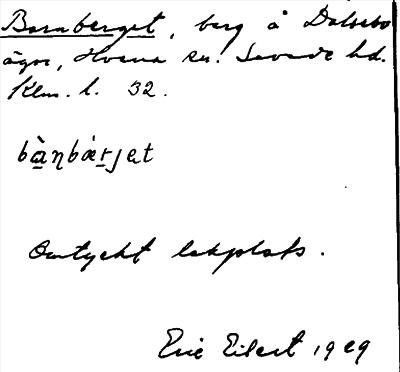 Barnberget, berg å Dalsebo
ägor, Hvena sn. Sevede hd.
Klm. l. 32.
bà̱ŋbæṟjet
Omtyckt lekplats.
Eric Eilert 1929